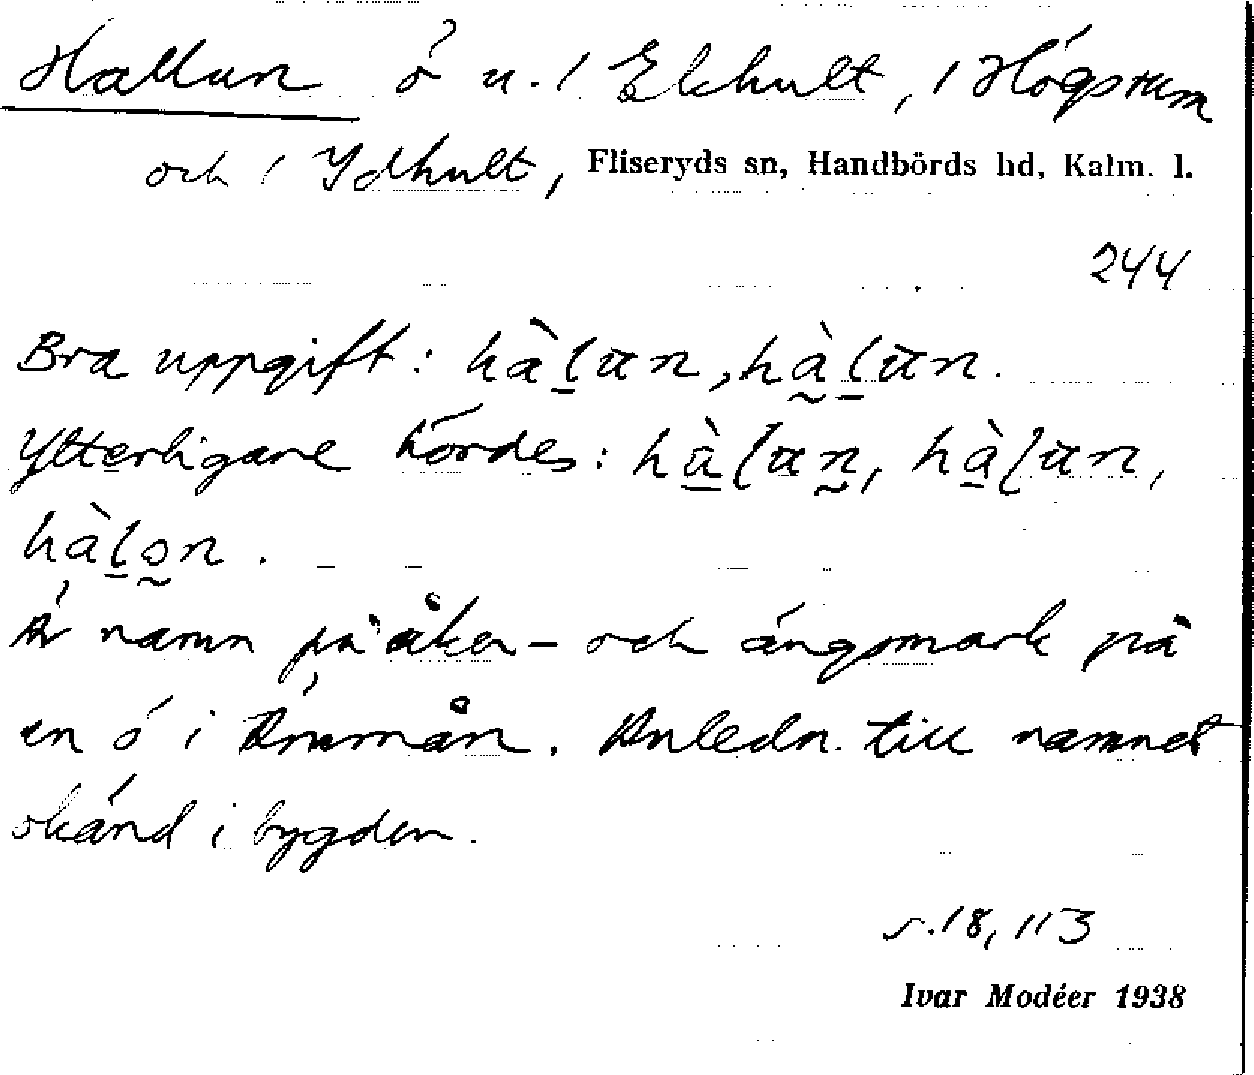 Hallun ö u. 1 Ekhult, 1 Högsrum
och 1 Ydhult, Fliseryds sn, Handbörds hd, Kalm. l.
244
Bra uppgift: hàl̠un, hà̰l̠un.
Ytterligare hördes: hà̠lun̰, hà̠lun,
hàl̠ə̰n.
Är namn på åker- och ängsmark på
en ö i Ämmån. Anledn. till namnet
okänd i bygden.
s. 18, 113
Ivar Modéer 1938